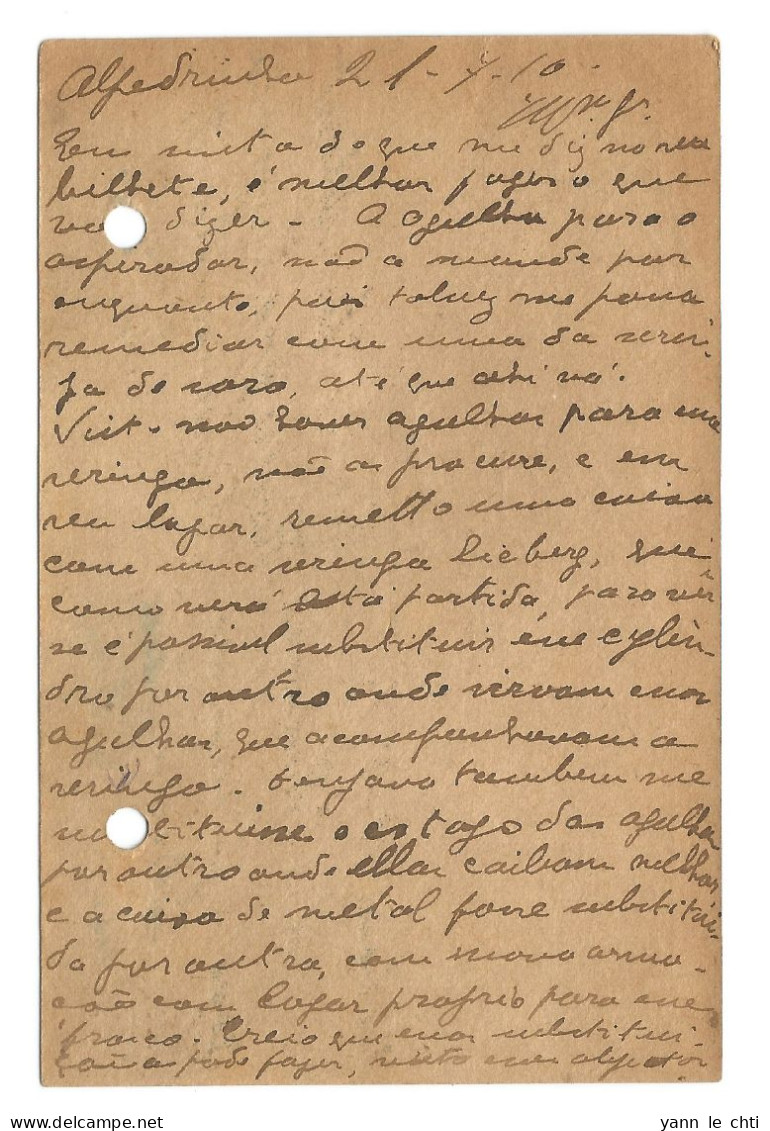 Alpedrinha 21-7-10.
Em vista do que me diz no seu
bilhete, é melhor fazer o que
diger - A agulha para o
aspirador, não a mande por
enquanto, pois talvez me possa
remediar com uma da serin-
ga de soro, até que ahi vá.
Visto não haver agulhas para essa
seringa, não as procure, e em
seu logar, remetto uma caixa
com uma seringa Lieberg, que
como verá está partida, para ver
se é possivel substituir esse cylin-
dro por outro onde sirvam essas
agulhas, que acompanhavam a
seringa. Desejava tambem me
substituisse o estojo das agulhas
por outro onde ellas caibam melhor,
e a caixa de metal fosse substitui-
da por outra, com nova arma-
ção com logar proprio para esse
frasco. Creio que essa substitui-
ção a pode fazer, visto
yann le chti